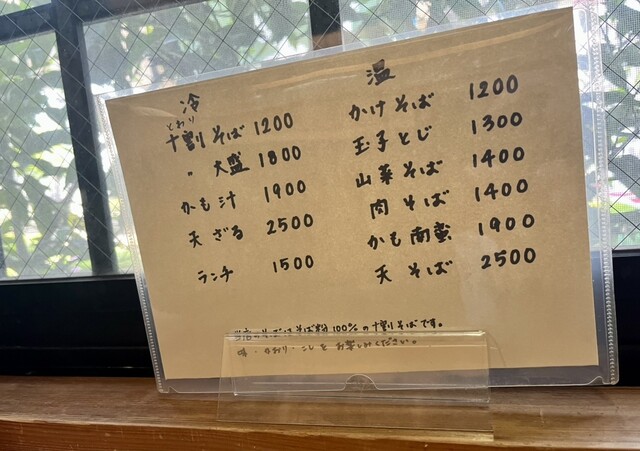 冷
とわり
十割そば 1200
〃 大盛 1800
かも汁 1900
天ざる 2500
ランチ 1500
温
かけそば 1200
玉子とじ 1300
山菜そば 1400
肉そば 1400
かも南蛮 1900
天そば 2500
当店のそばはそば粉100%の十割そばです。
味・かおり・こしをお楽しみください。